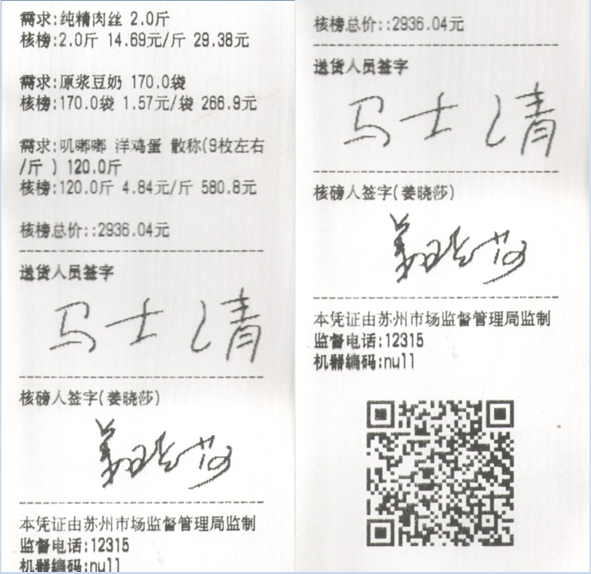 需求:纯精肉丝 2.0斤
核榜:2.0斤 14.69元/斤 29.38元
需求:原浆豆奶 170.0袋
核榜:170.0袋 1.57元/袋 266.9元
需求:叽嘟嘟 洋鸡蛋 散称(9枚左右
/斤 ) 120.0斤
核榜:120.0斤 4.84元/斤 580.8元
核榜总价::2936.04元
送货人员签字
马士清
核磅人签字(姜晓莎)
姜晓莎
本凭证由苏州市场监督管理局监制
监督电话:12315
机器编码:null
核榜总价::2936.04元
送货人员签字
马士清
核磅人签字(姜晓莎)
姜晓莎
本凭证由苏州市场监督管理局监制
监督电话:12315
机器编码:null